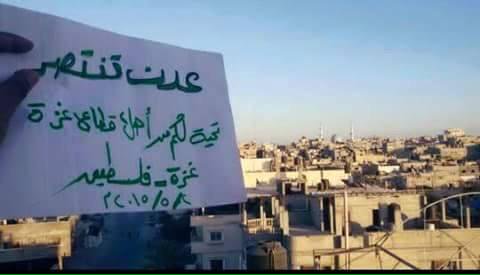 عدن تنتصر
تحية لكم من أهل قطاع غزة
غزة - فلسطين